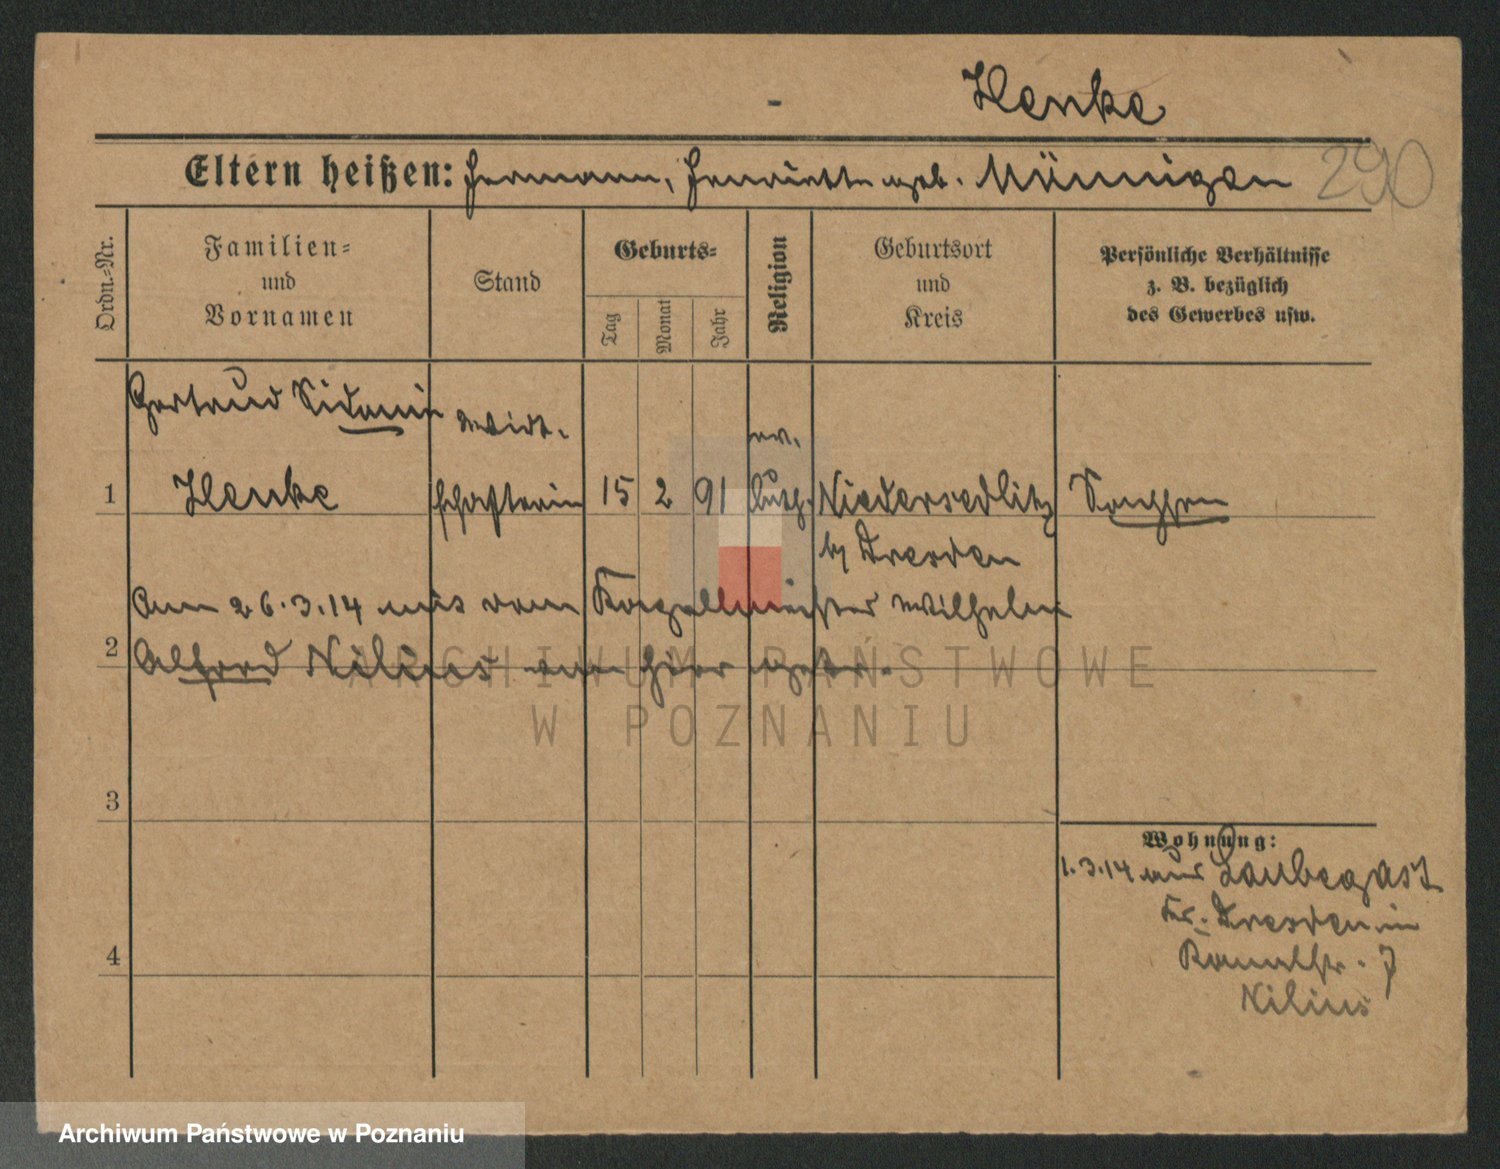 Henke
Eltern heißen: Hermann, Henriette geb. Münnigen
290
Ordn.-Nr.
Familien-
und
Vornamen
Stand
Geburts-
Tag
Monat
Jahr
Religion
Geburtsort
und
Kreis
Persönliche Verhältnisse
z. B. bezüglich
des Gewerbes usw.
Gertrud Sidonie
Wirt- ev.
1 Henke schafterin 15 2 91 luth. Niedersedlitz Sachsen
b/ Dresden
Am 26.3.14 mit dem Wilhelm
2 Alfred Nilius hier getr.
3
4
Wohnung:
1.3.14 aus Laubegast
Kr. Dresden in
7
Nilius
ARCHIWUM PAŃSTWOWE
W POZNANIU
Archiwum Państwowe w Poznaniu